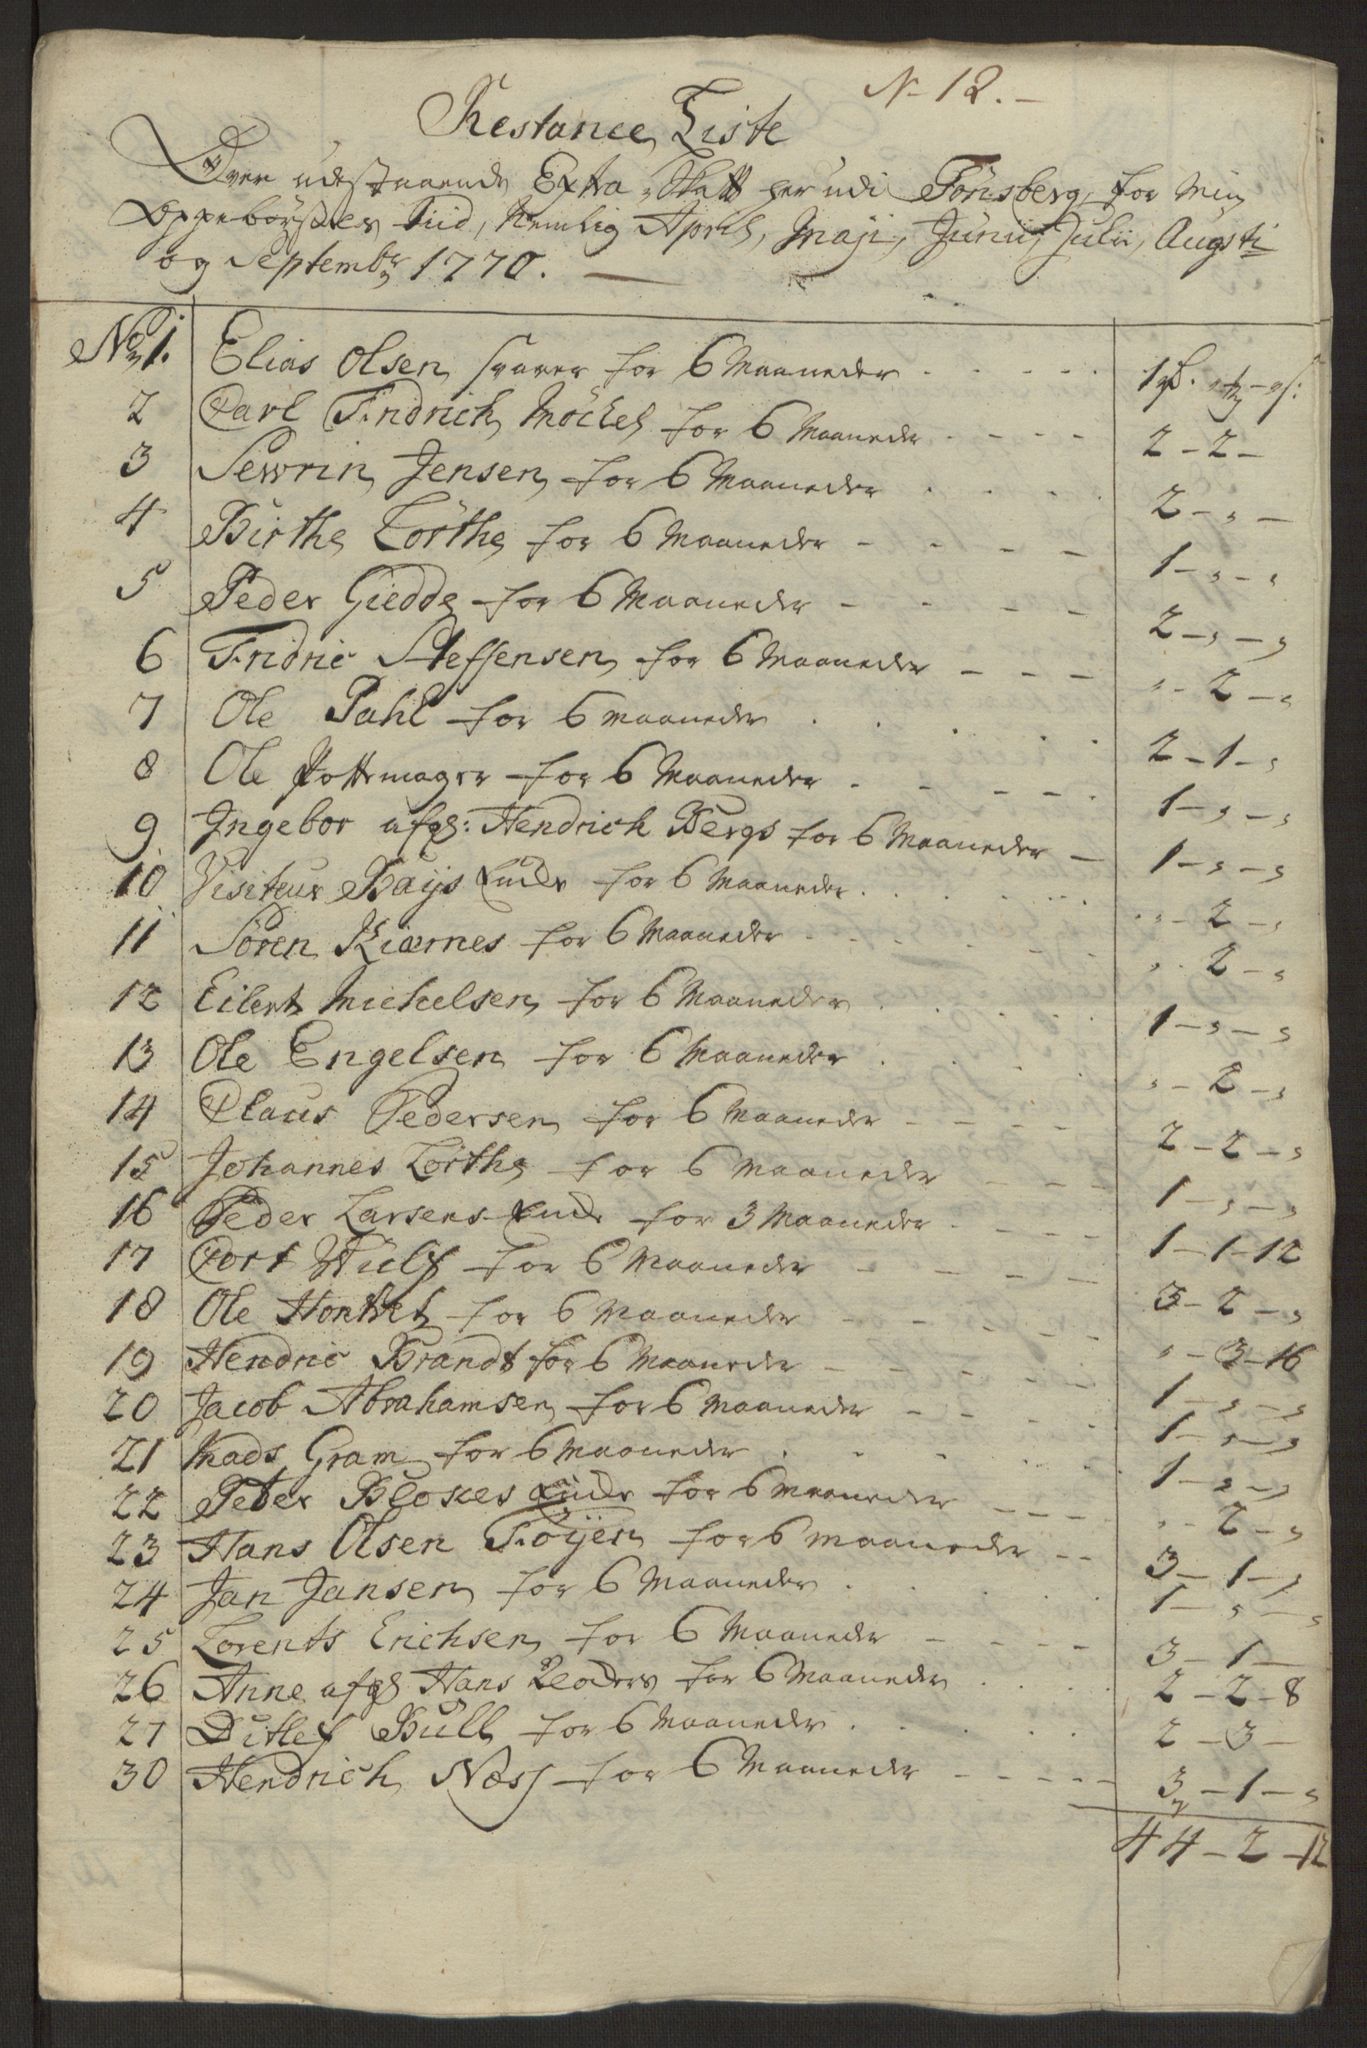 N 12.
Restance Liste
Over udestaaende Extra Skatt her udi Tönsberg for min
Oppebörsels Tiid, Nemlig April, Maji, Junii, Julii, Augsti
og Septembr 1770.
No 1. Elias Olsen svarer for 6 Maaneder 1
2 Carl Fridrich Möckel for 6 Maaneder 2 - 2 -
3 Sewrin Jensen for 6 Maaneder 2 - " -
4 Birthe Lörthe for 6 Maaneder 1 - " - "
5 Peder Giedde for 6 Maaneder 2 - " - "
6 Fridric Steffensen for 6 Maaneder " - 2 - "
7 Ole Pahl for 6 Maaneder 2 - 1 - "
8 Ole Pottemager for 6 Maaneder 1 - " - "
9 Ingebor afg: Hendrich Bergs for 6 Maaneder 1 - " - "
10 Visiteur Baijs Encke for 6 Maaneder " - 2 - "
11 Sören Kiærnes for 6 Maaneder " - 2 - "
12 Eilert Michelsen for 6 Maaneder 1 - " - "
13 Ole Engelsen for 6 Maaneder " - 2 - "
14 Claus Pedersen for 6 Maaneder 2 - 2 - "
15 Johannes Lörthe for 6 Maaneder 1 - " - "
16 Peder Larsens Encke for 3 Maaneder 1 - 1 - 12
17 Cort Wulf for 6 Maaneder 3 - 2 - "
18 Ole Hontvet for 6 Maaneder " - 3 - 16
19 Hendric Brandt for 6 Maaneder 1 - " - "
20 Jacob Abrahamsen for 6 Maaneder 1 - " - "
21 Mads Gram for 6 Maaneder 1 - " - "
22 Peter Blokes Encke for 6 Maaneder " - 2 - "
23 Hans Olsen Föijen for 6 Maaneder 3 - 1 - "
24 Jan Jansen for 6 Maaneder 1 - " - "
25 Lorents Erichsen for 6 Maaneder 3 - 1 -
26 Anne afg Hans for 6 Maaneder 2 - 2 - 8
27 Ditlef Bull for 6 Maaneder 2 - 3 -
30 Hendrich Næss for 6 Maaneder 3 - 1 - "
44 - 2 - 12